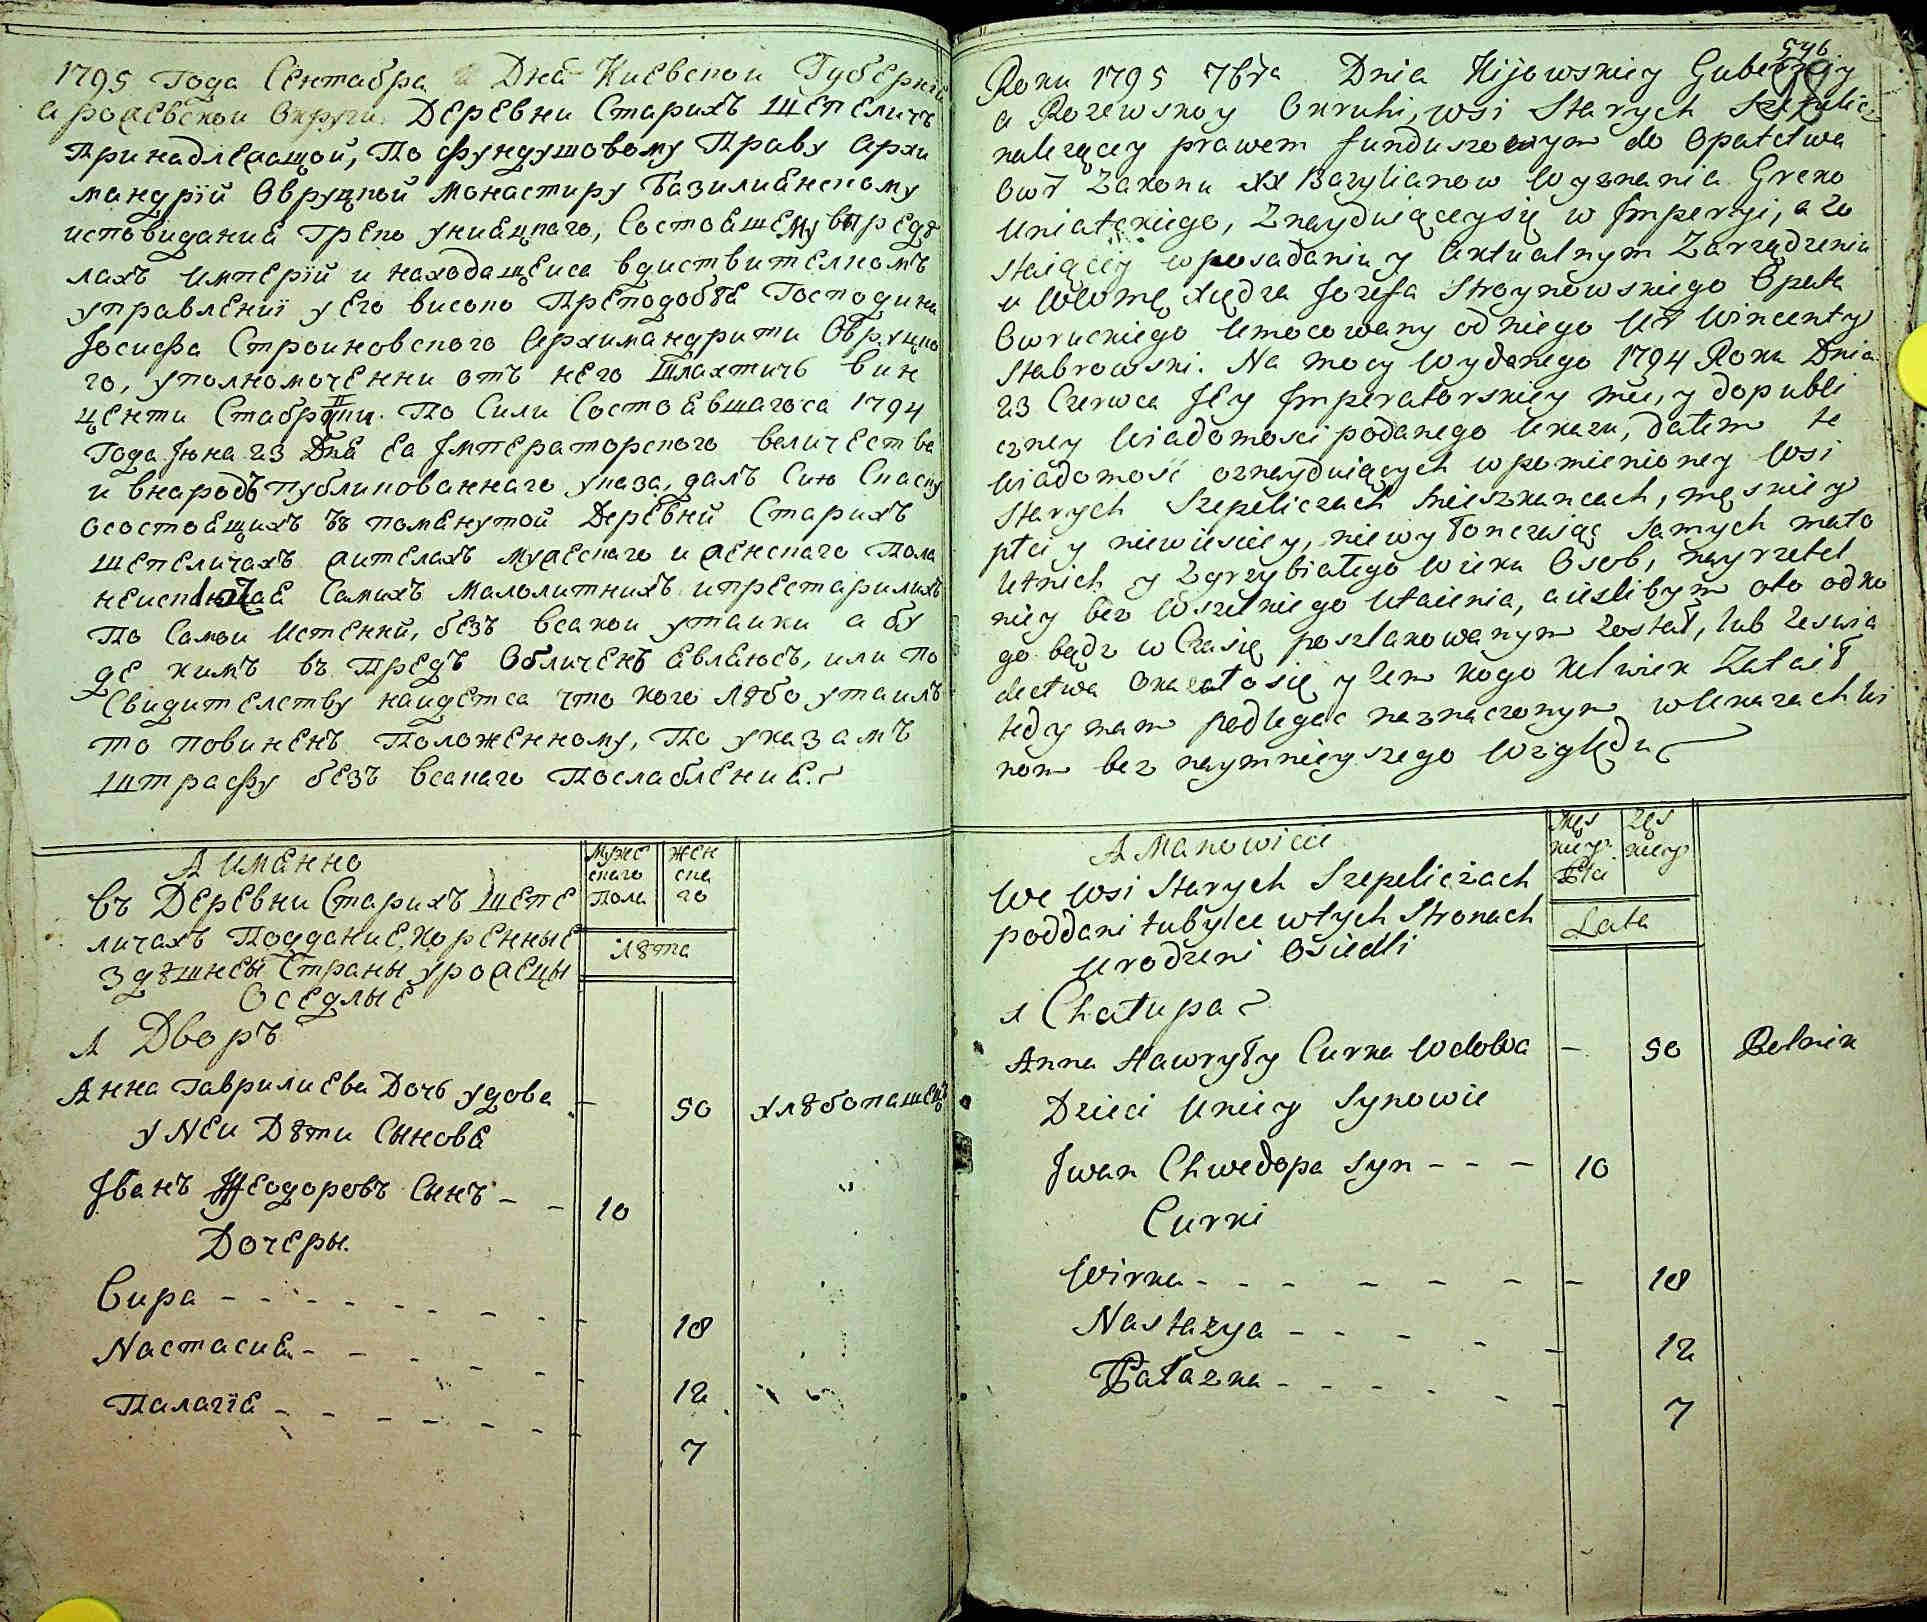 1795 Года Сентабра Дна Киевскои Губерніи
а рожевскои Округи Деревни Старихъ Шепеличъ
Принадлежащой, По фундушовому Праву Архи
мандрій Овруцкой монастиру Базилианскому
исповиданиа Греко униацкаго, Состоащему вπредѣ
лахъ империй и находащеиса вдиствителномъ
управлениї у Его високо Преподобѣа Господина
Іосифа Строиновского Архимандрити Овруцко
го, уполномоченни отъ него Шлахтичъ Вин
центи Стабровски. По Сили Состоавшагоса 1794
Года Іюна 23 Дна Еа Імператорского величества
и внародъ публикованнаго указа, далъ Сию Скаску
осостоащихъ въ поманутой Деревни Старихъ
Шепеличахъ жителахъ мужескаго и женскаго Пола
неисключаа Самихъ малолитнихъ ипрестарилихъ
По Самои Истенни, безъ всакои утаики а бу
де кимъ въ Предъ Обличенъ авлаюсъ, или По
Свидителству наидетса что кого лѣбо утаилъ
то повиненъ Положенному, По указамъ
Штрафу безъ всакаго Послаблениа.
А иманно
въ Деревни Старихъ Шепе
личахъ Поддание, Коренные
здѣшнеи Страны урожецы
Оседлые
Муже
скаго
Пола
жен
ска
го
лѣта
1 Дворъ
Анна Гаврилиева Дочь удова — 50 хлѣбопашецъ
у Неи Дѣти Сынова
Іванъ Феодоровъ Сынъ - - 10
Дочеры.
Вира - - - - - - - - 18
Настасиа - - - - - - 12
Палагїа - - - - - - - 7
546
Roku 1795 7bra Dnia Kijowskiey Guberniy
a Rozewskoy Okruhi, wsi Starych Szepelicz
należącey prawem funduszowym do Opatctwa
Owr Zakonu XX Bazylianow Wyznania Greko
Uniatckiego, Znayduiącey się w Jmperyi, a zo
staiącey w posadaniu y Aktualnym Zarządzeniu
u Wo Jmę Xiędza Jozefa Stroynowskiego Opata
Owruckiego Umocowany od niego Ur Wincenty
Stabrowski. Na mocy Wydanego 1794 Roku Dnia
23 Czerwca Jey Jmperatorskiey Mci, y dopubli
czney Wiadomosci podanego Ukazu, dałem te
wiadomość oznayduiących w pomienioney Wsi
Starych Szepeliczach Mieszkancach, męskiey
płci y niewiesciey, niewyłonczaiąc samych mało
letnich y Zgrzybiałego Wieku Osob, nayrzetel
niey bez wszelkiego Utaienia, a ieslibym oto od ko
go bądz w Czasię poszlakowanym został, lub zeswia
dectwa okazało się y zem kogo kolwiek Zataił
tedy mam podlegac naznaczonym w Ukazach Wi
nom bez naymnieyszego Względu
A Manowicie
We Wsi Starych Szepeliczach
poddani tubylce w tych Stronach
Urodzeni Osiedli
Męs
kiey
Płci
Zęs
kiey
Lata
1 Chałupa
Anna Hawryły Curka Wdowa — 50 Rolnik
Dzieci Uniey Synowie
Jwan Chwedora Syn - - - 10
Curki
Wirka - - - - - - - - 18
Nastazya - - - - - 12
Pałazka - - - - - - 7